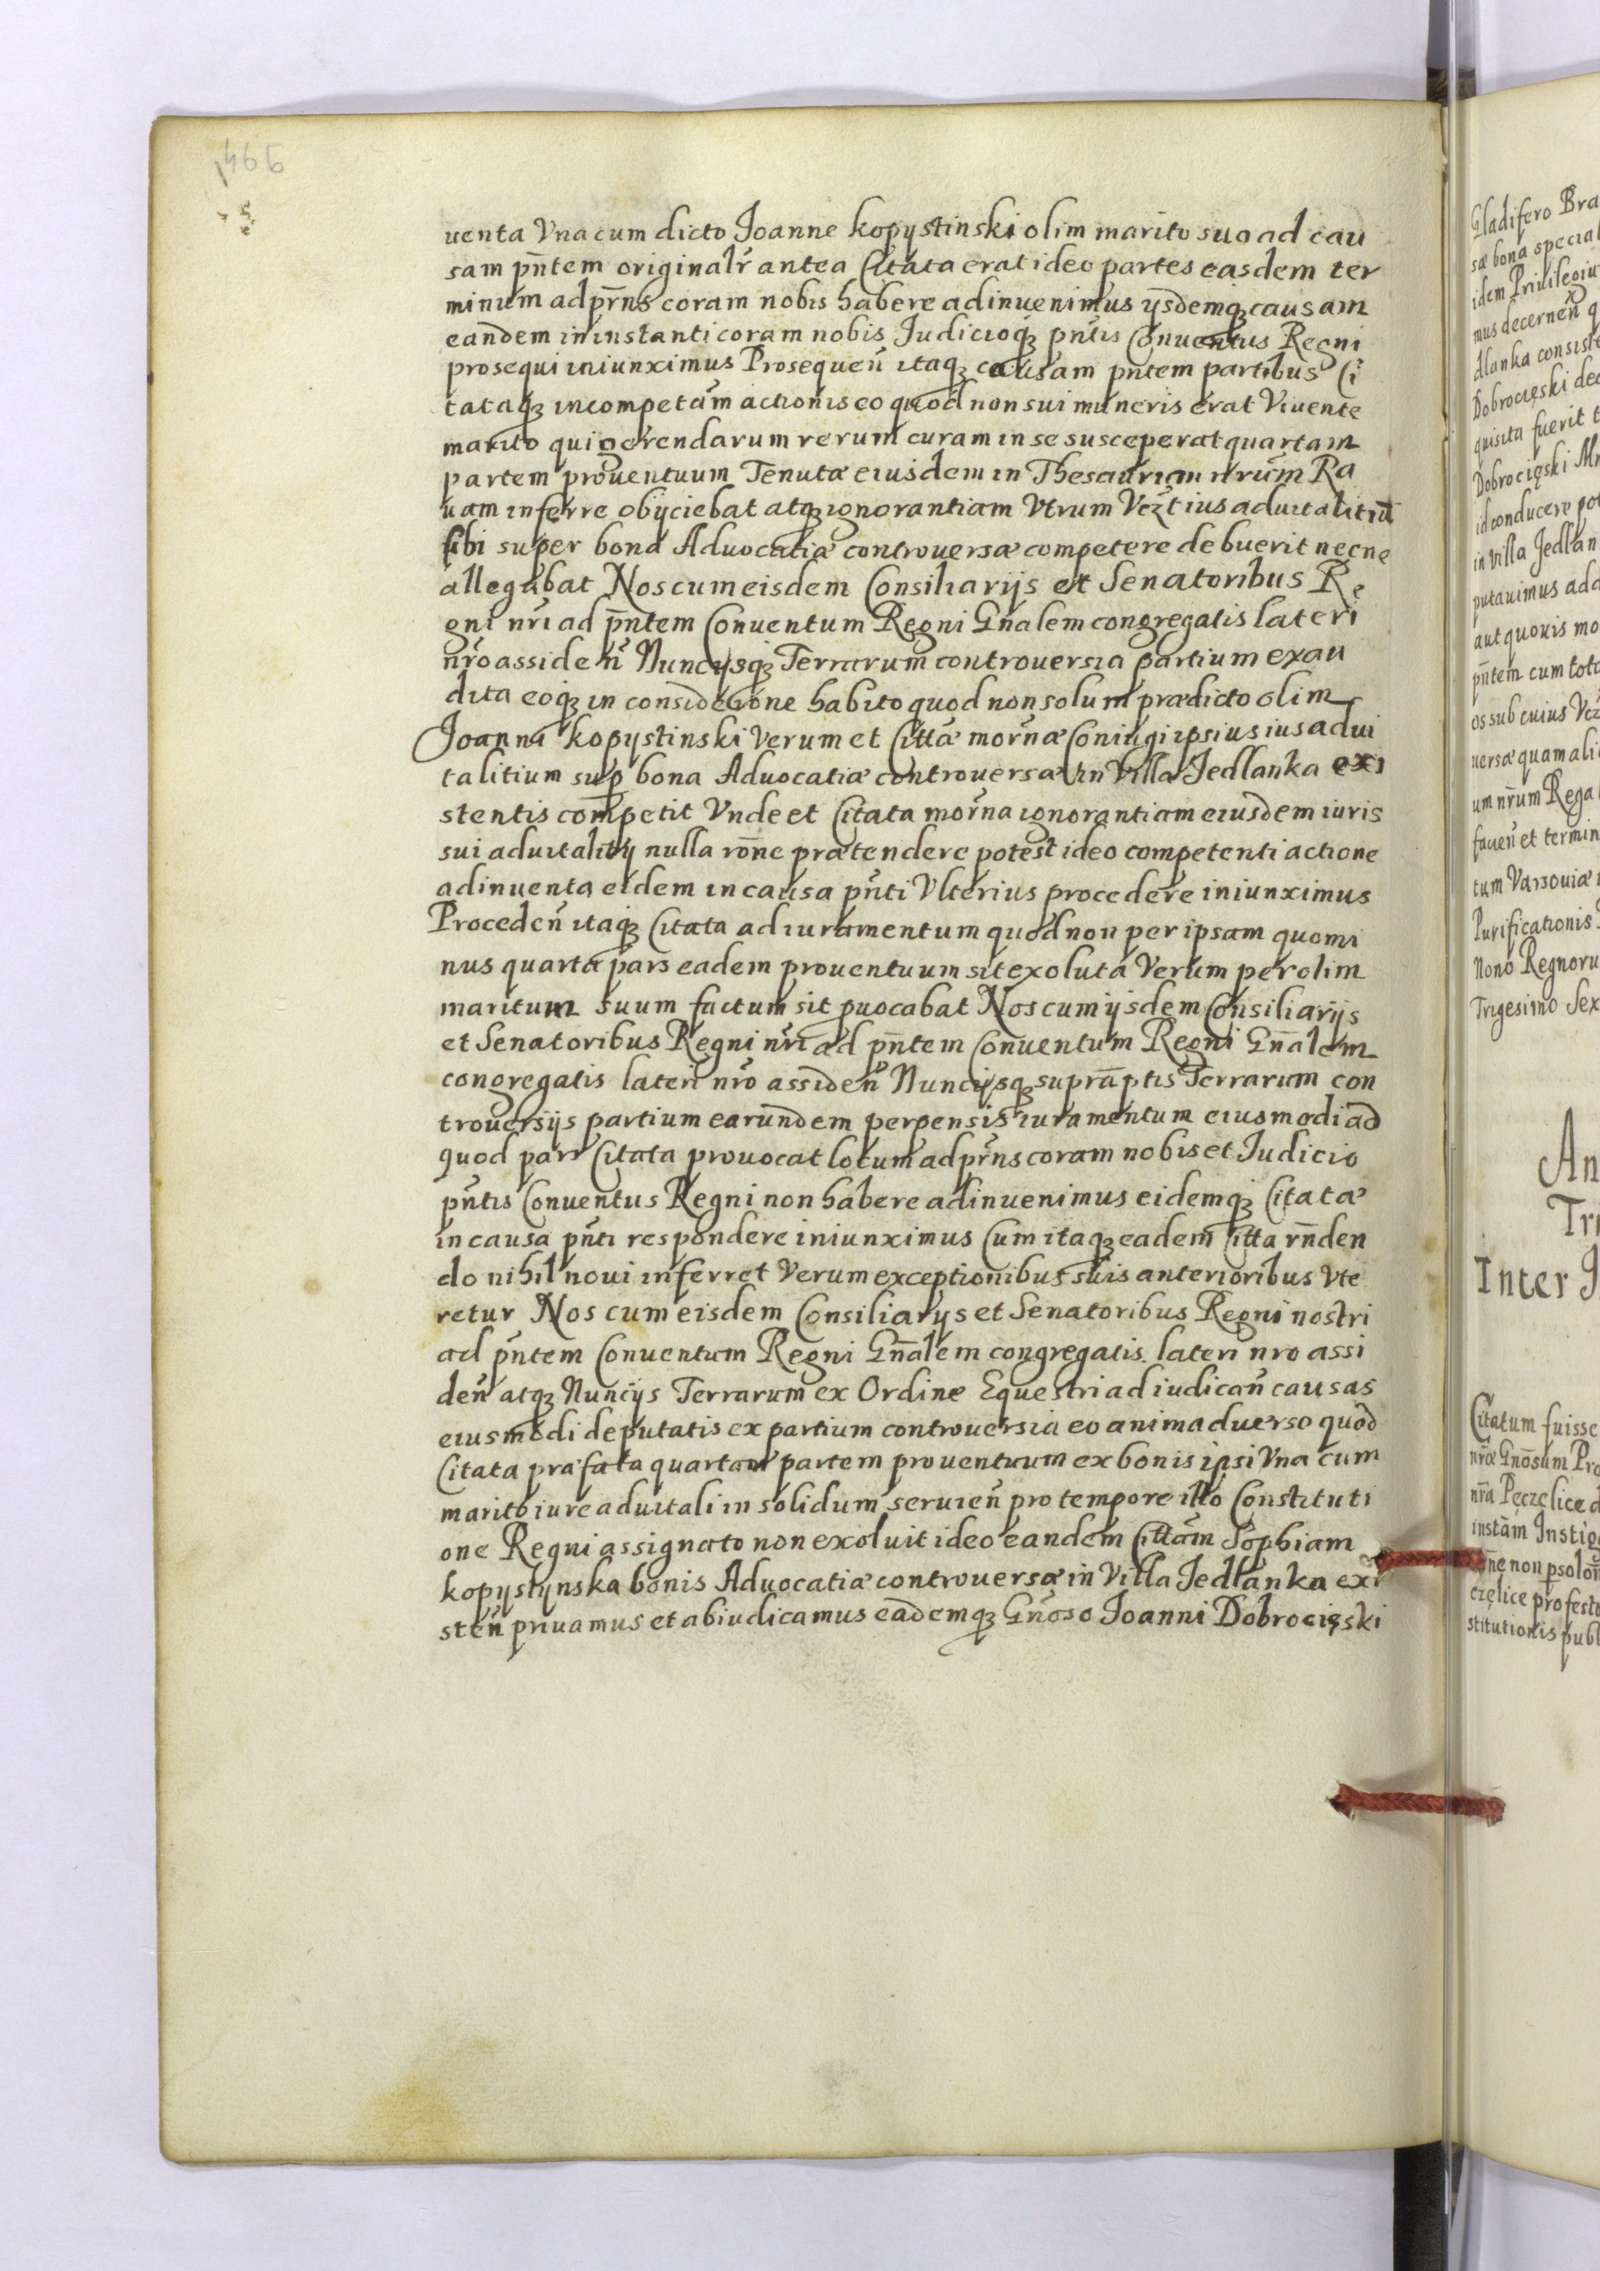 uenta Vna cum dicto Joanne kopystinski olim marito suo ad cau
sam pñtem originalr̃ antea Citata erat ideo partes easdem ter
minum ad pr̃ns coram nobis habere adinuenimus ysdemq; causam
eandem in instanti coram nobis Judicioq; pñtis Conuentus Regni
prosequi iniunximus Prosequeñ itaq; causam pñtem partibus Ci
tataq; incompetam̃ actionis eo quod non sui muneris erat Viuente
marito qui gerendarum rerum curam in se susceperat quartam
partem prouentuum Tenutæ eiusdem in Thesaurum nr̃um Ra
uam inferre obyciebat atq; ignorantiam Vtrum Vcz̃t ius aduitalitiũ
sibi super bona Aduocatiæ controuersæ competere debuerit necne
allegabat Nos cum eisdem Consiliarijs et Senatoribus Re
gni nr̃i ad pñtem Conuentum Regni Gñalem congregatis lateri
nr̃o assideñ Nuncijsq; Terrarum controuersia partium exau
dita eoq; in consideróne habito quod non solum prædicto olim
Joanni kopystinski Verum et Cittæ mornæ Coniugi ipsius ius adui
talitium sup bona Aduocatiæ controuersæ in Villa Jedlanka exi
stentis competit Vnde et Citata mor̃na ignorantiam eiusdem iuris
sui aduitalitij nulla rõne prætendere potest ideo competenti actione
adinuenta eidem in causa pñti Vlterius procedere iniunximus
Procedeñ itaq; Citata ad iuramentum quod non per ipsam quomi
nus quarta pars eadem prouentuum sit exoluta Verum per olim
maritum suum factum sit puocabat Nos cum ijsdem Consiliarijs
et Senatoribus Regni nr̃i ad pñtem Conuentum Regni Gñalem
congregatis lateri nr̃o assideñ Nuncijsq; supraptis Terrarum con
trouersijs partium earundem perpensis iuramentum eiusmodi ad
quod pars Citata prouocat locum ad pr̃ns coram nobis et Judicio
pñtis Conuentus Regni non habere adinuenimus eidemq; Citatæ
in causa pñti respondere iniunximus Cum itaq; eadem Citta rñden
do nihil noui inferret Verum exceptionibus suis anterioribus Vte
retur Nos cum eisdem Consiliarijs et Senatoribus Regni nostri
ad pñtem Conuentum Regni Gñalem congregatis lateri nro assi
deñ atq; Nuncijs Terrarum ex Ordine Equestri ad iudicañ causas
eiusmodi deputatis ex partium controuersia eo animaduerso quod
Citata præfata quartam partem prouentuum ex bonis ipsi Vna cum
marito iure aduitali in solidum seruieñ pro tempore illo Constituti
one Regni assignato non exoluit ideo eandem Cittam Sophiam
kopystynska bonis Aduocatiæ controuersæ in Villa Jedlanka exi
steñ priuamus et abiudicamus eademq; Gñoso Joanni Dobrocięski
Gladifero Bra
sæ bona special
idem Priuilegiu
mus decerneñ q
dlanka consiste
Dobrocięski dec
quisita fuerit t
Dobrocięski Mr
id conducere pot
in Villa Jedlan
putauimus add
aut quouis mo
pñtem cum toto
os sub cuius Vcz
uersæ quam ali
um nr̃um Regal
faueñ et termin
tum Varsouiæ i
Purificationis
Nono Regnoru
Trigesimo Sex
An
Tri
Inter J
Citatum fuisse
nr̃æ Gñosum Pro
nr̃a Pęczelice d
instam̃ Instig
ne non psolo
czelice profesto
stitutionis publ